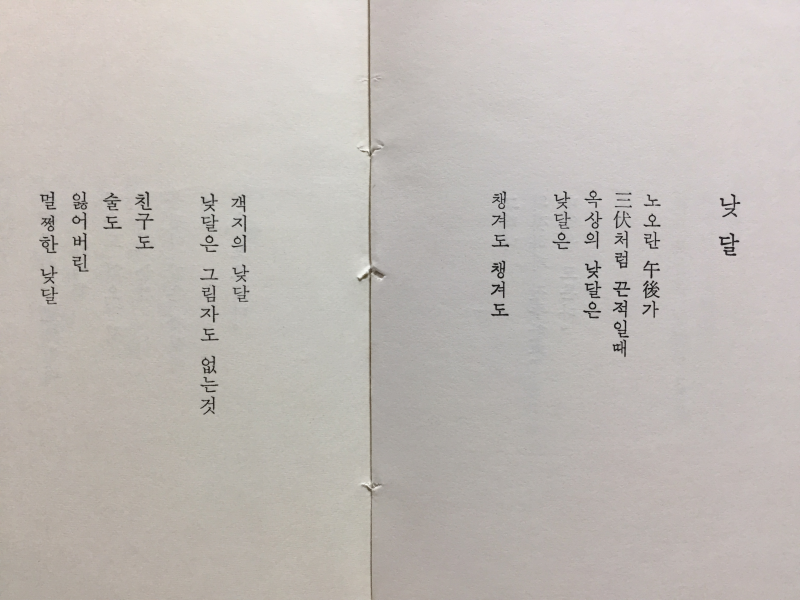 낮 달
노오란 午後가
三伏처럼 끈적일때
옥상의 낮달은
낮달은
챙겨도 챙겨도
객지의 낮달
낮달은 그림자도 없는것
친구도
술도
잃어버린
멀쩡한 낮달